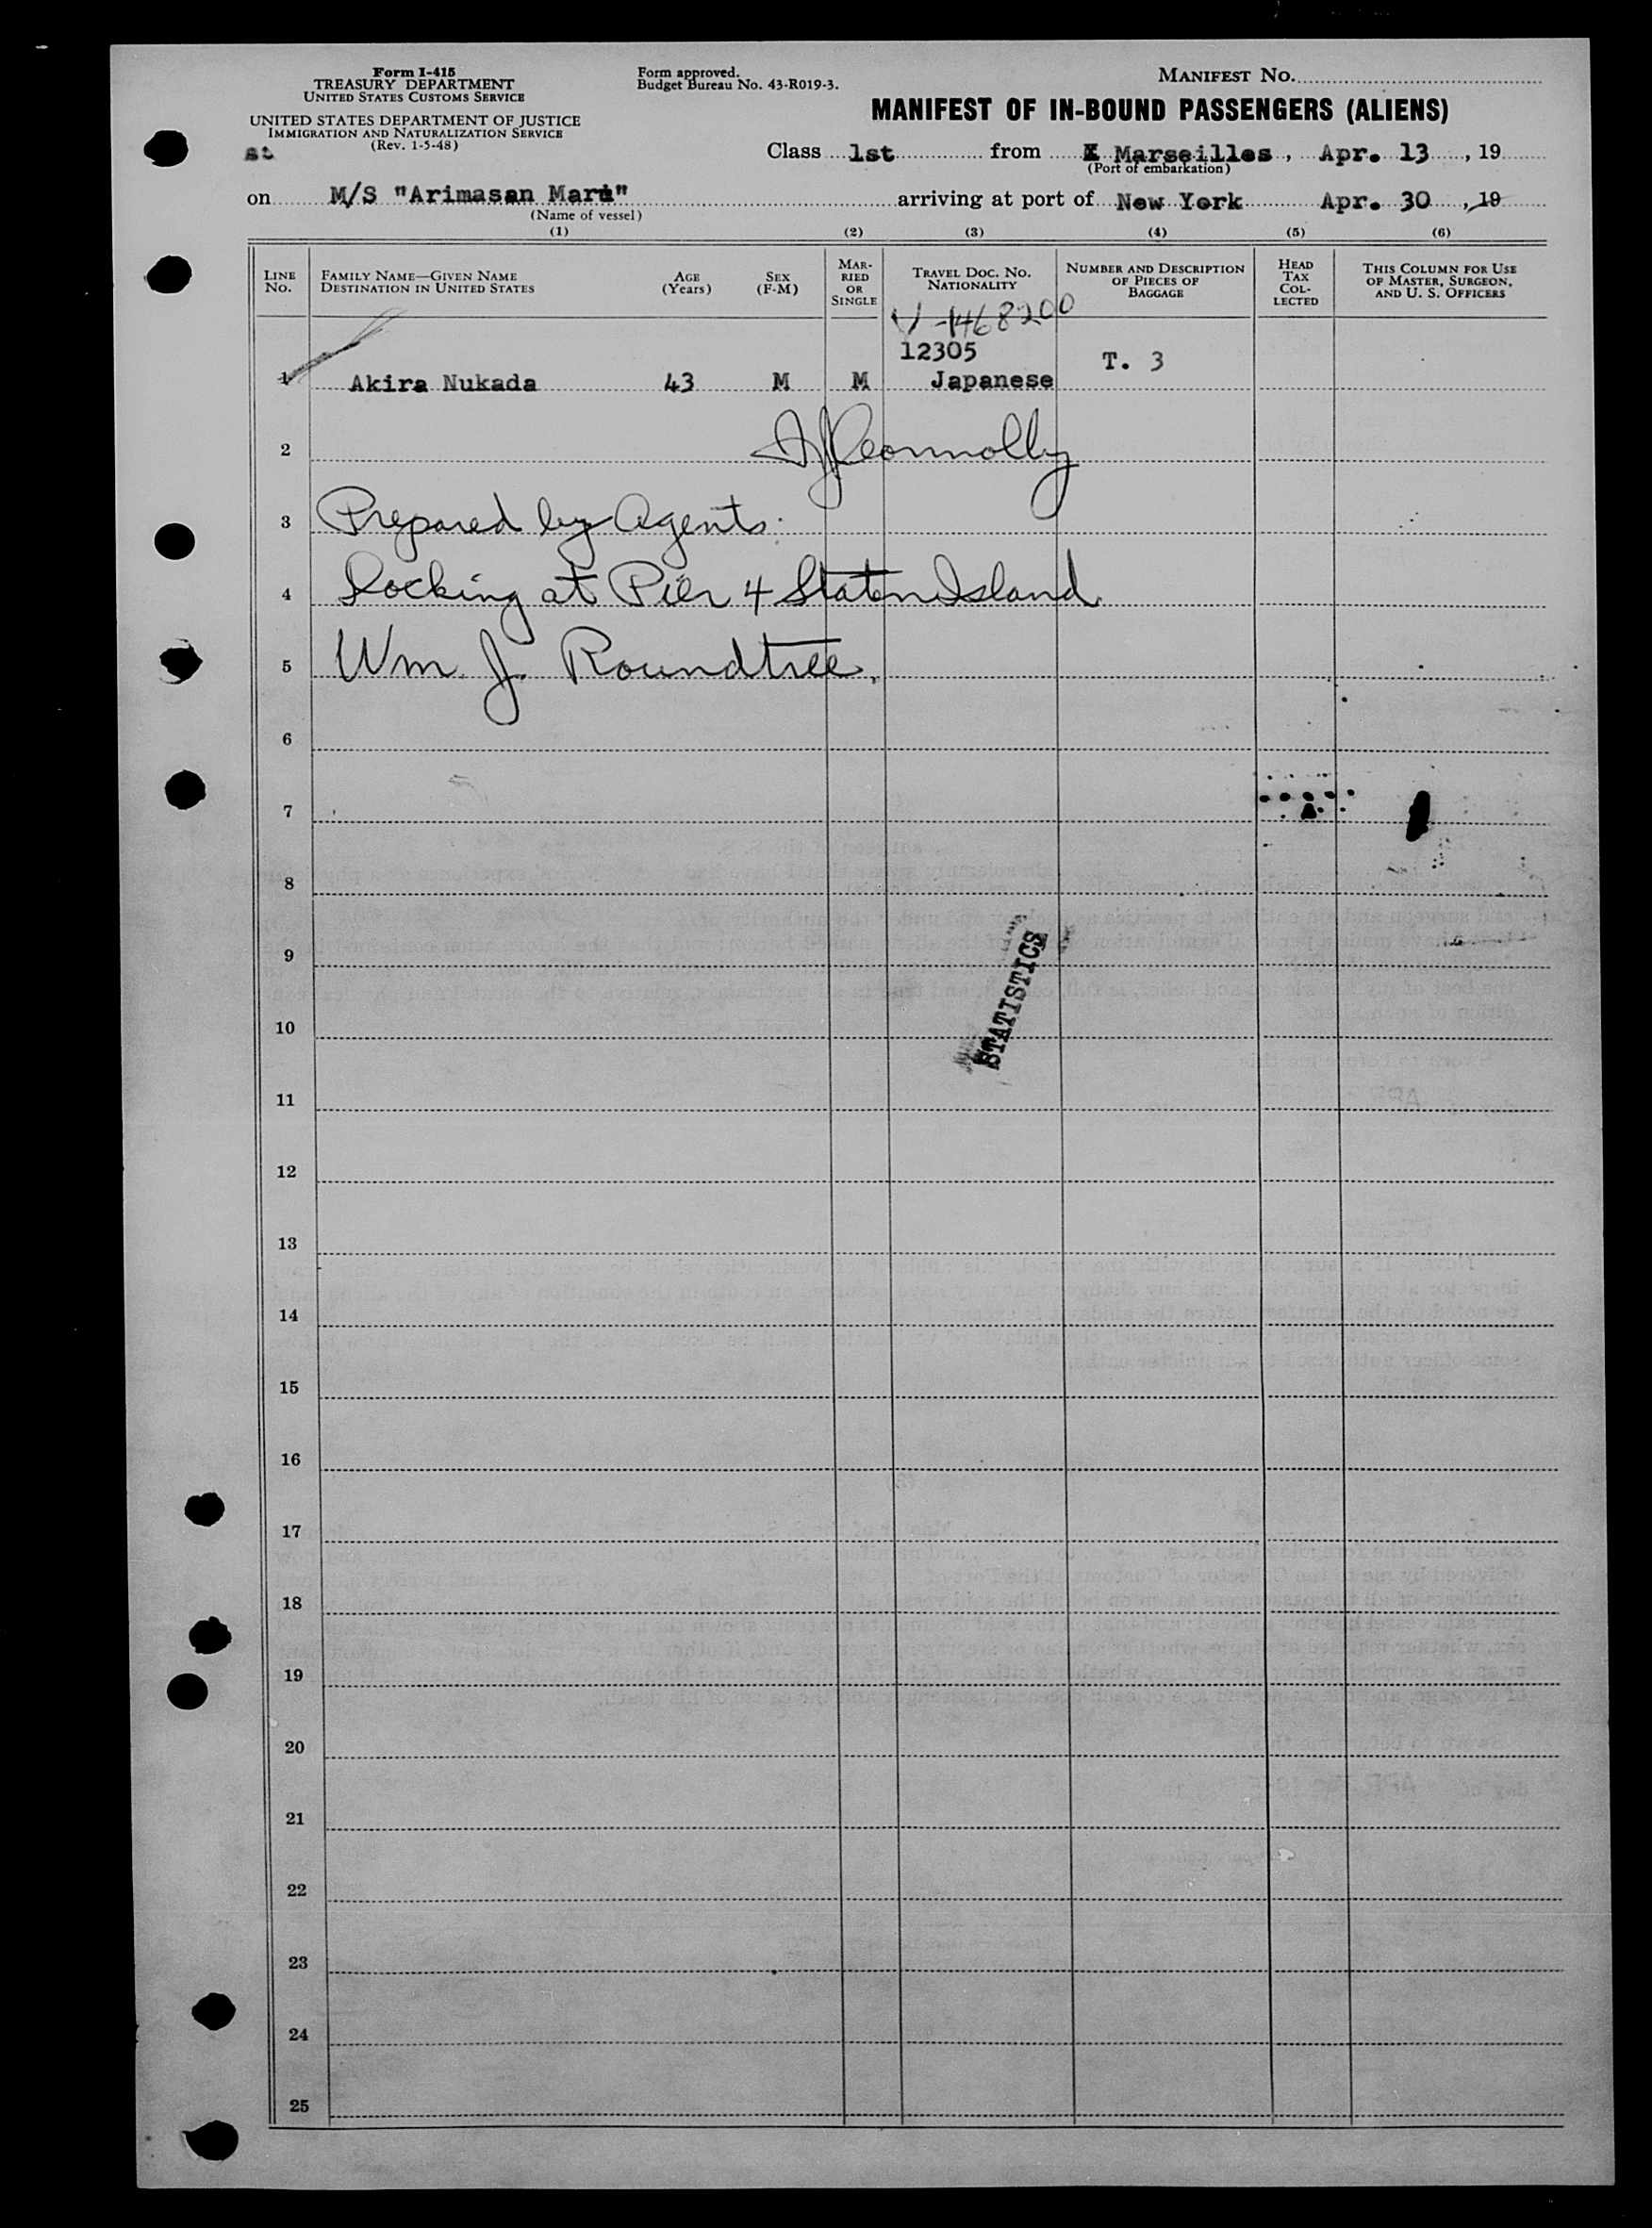 Form I-415
TREASURY DEPARTMENT
UNITED STATES CUSTOMS SERVICE
UNITED STATES DEPARTMENT OF JUSTICE
IMMIGRATION AND NATURALIZATION SERVICE
(Rev. 1-5-48)
Form approved.
Budget Bureau No. 43-R019-3.
MANIFEST NO.
MANIFEST OF IN-BOUND PASSENGERS (ALIENS)
st
Class 1st from X Marseilles, Apr. 13, 19
(Port of embarkation)
on M/S "Arimasan Maru" arriving at port of New York Apr. 30, 19
(Name of vessel)
(1) (2) (3) (4) (5) (6)
LINE NO.
FAMILY NAME—GIVEN NAME
DESTINATION IN UNITED STATES
AGE (Years)
SEX (F-M)
MARRIED OR SINGLE
TRAVEL DOC. NO. NATIONALITY
NUMBER AND DESCRIPTION OF PIECES OF BAGGAGE
HEAD TAX COLLECTED
THIS COLUMN FOR USE OF MASTER, SURGEON, AND U. S. OFFICERS
V-1468200
12305
T. 3
1 Akira Nukada 43 M M Japanese
2 Connolly
3 Prepared by Agents.
4 Docking at Pier 4 Staten Island
5 Wm. J. Roundtree.
6
7
8
9
STATISTICS
10
11
12
13
14
15
16
17
18
19
20
21
22
23
24
25